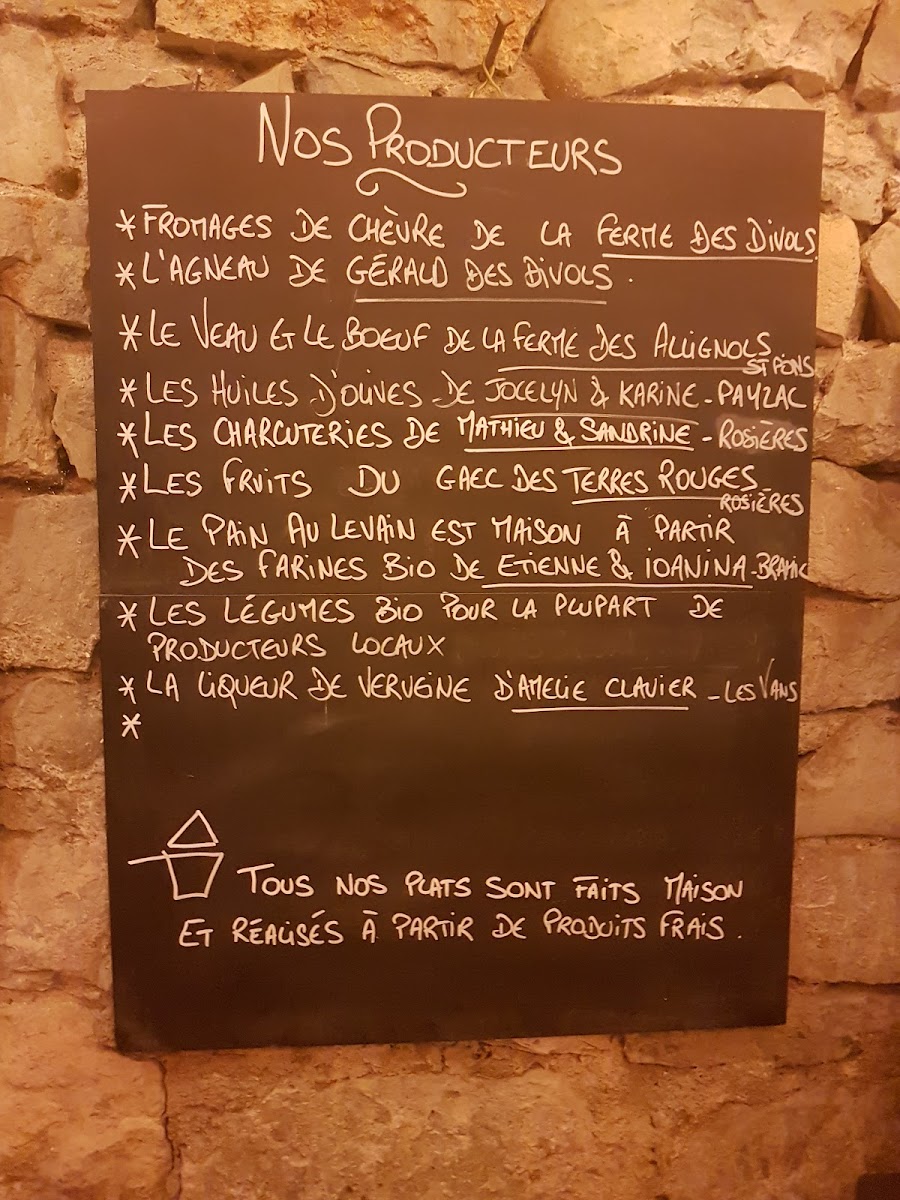 NOS PRODUCTEURS
* FROMAGES DE CHÈVRE DE LA FERME DES DIVOLS.
* L'AGNEAU DE GÉRALD DES DIVOLS.
* LE VEAU & LE BOEUF DE LA FERME DES ALLIGNOLS
ST PONS
* LES HUILES D'OLIVES DE JOCELYN & KARINE - PAYZAC
* LES CHARCUTERIES DE MATHIEU & SANDRINE - ROSIÈRES
* LES FRUITS DU GAEC DES TERRES ROUGES -
ROSIÈRES
* LE PAIN AU LEVAIN EST MAISON À PARTIR
DES FARINES BIO DE ETIENNE & IOANINA -
* LES LÉGUMES BIO POUR LA PLUPART DE
PRODUCTEURS LOCAUX
* LA LIQUEUR DE VERVEINE D'AMELIE CLAVIER - LES VANS
*
TOUS NOS PLATS SONT FAITS MAISON
ET RÉALISÉS À PARTIR DE PRODUITS FRAIS.